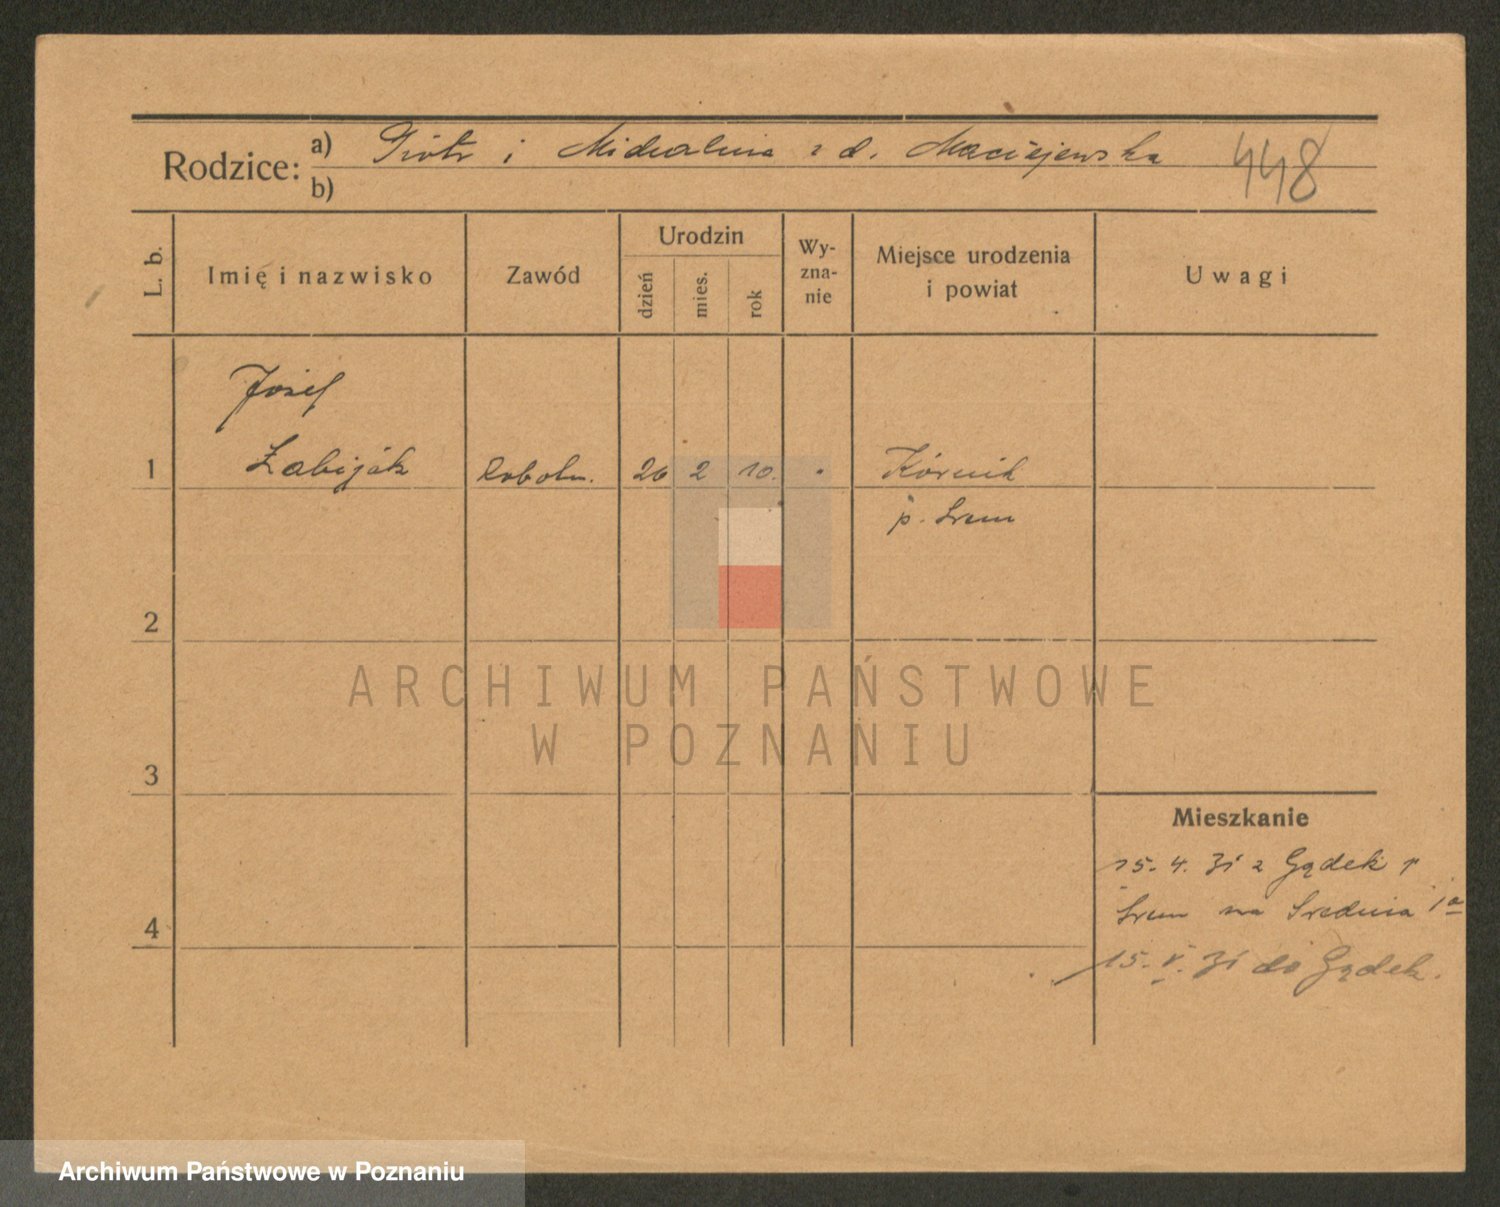 Rodzice: a) Piotr i Michalina z d. Maciejewska
448
b)
L. b.
Imię i nazwisko
Zawód
Urodzin
dzień
mies.
rok
Wy-
zna-
nie
Miejsce urodzenia
i powiat
Uwagi
Józef
1 Żabijak robotn. 26 2 10. Kórnik
p. Śrem
2
ARCHIWUM PAŃSTWOWE
W POZNANIU
3
Mieszkanie
15.4.31 z Gądek p
Śrem na Średnia 1a
4
15.V.31 do Gądek.
Archiwum Państwowe w Poznaniu